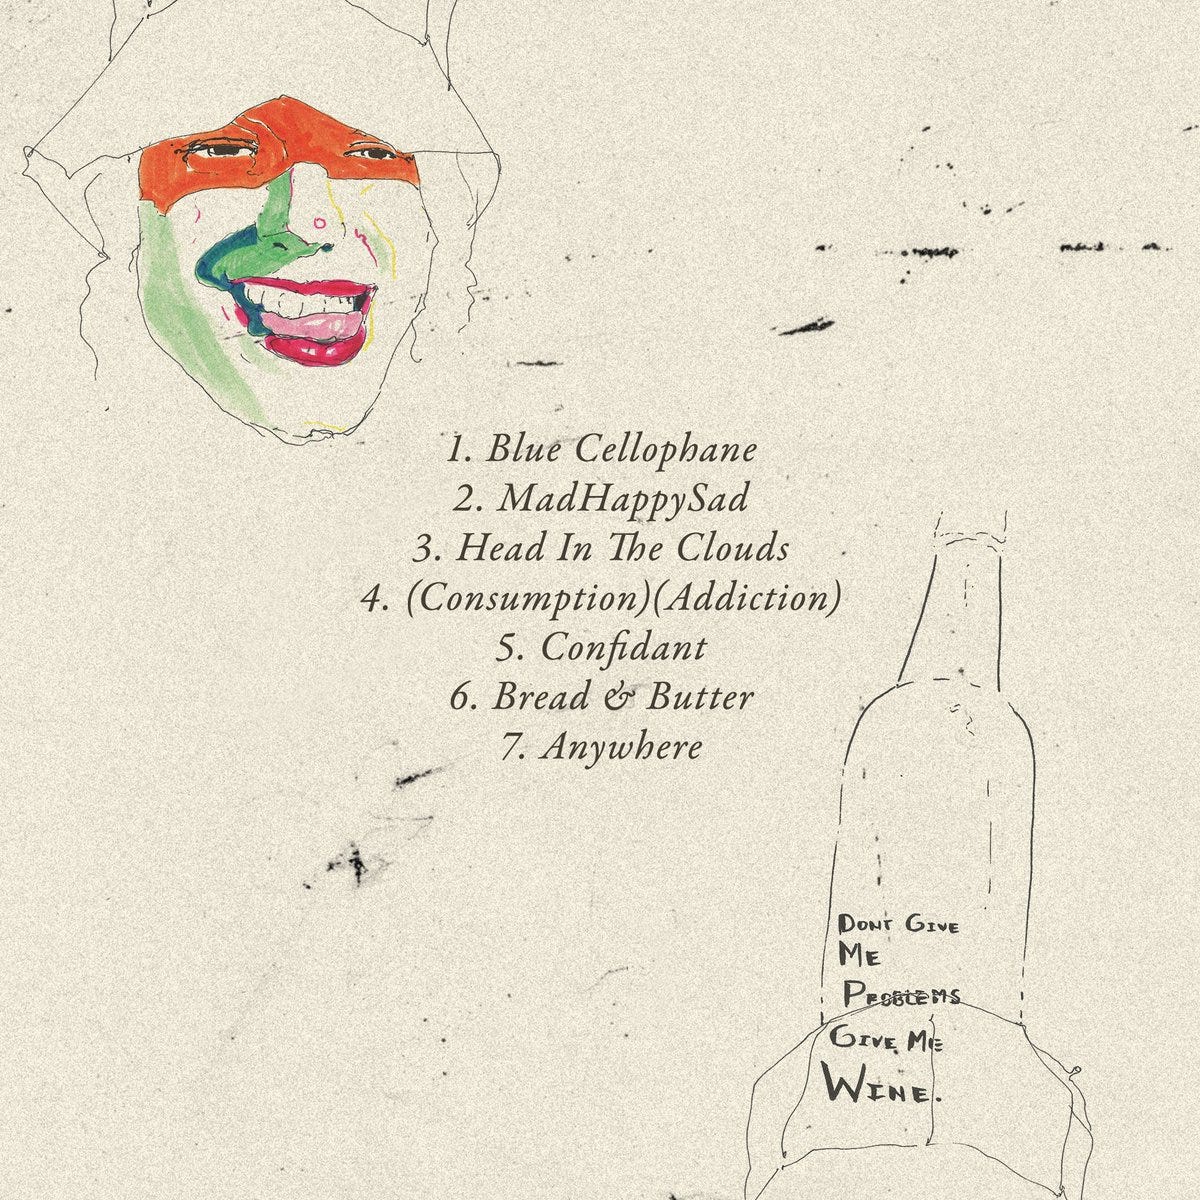 1. Blue Cellophane
2. MadHappySad
3. Head In The Clouds
4. (Consumption)(Addiction)
5. Confidant
6. Bread & Butter
7. Anywhere
DONT GIVE
ME
PROBLEMS
GIVE ME
WINE.